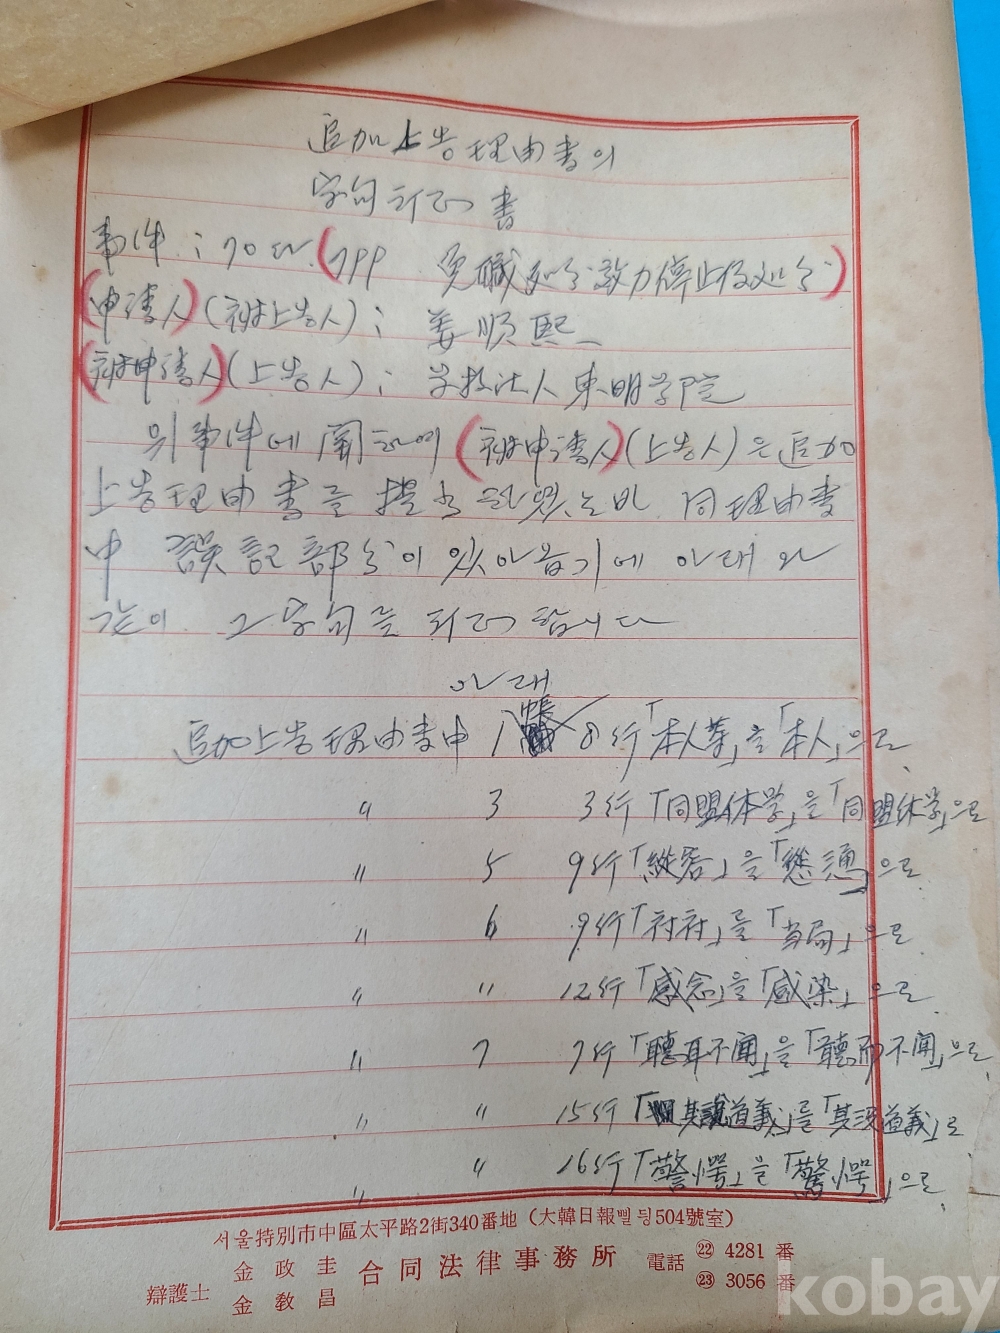 追加上告理由書의
字句訂正書
事件 ; 70다 (799 免職処分效力停止仮処分)
(申請人) (被上告人) ; 姜順熙
(被申請人) (上告人) ; 学校法人 東明学院
위 事件에 關하여 (被申請人) (上告人)은 追加
上告理由書를 提出하였는바 同理由書
中 誤記部分이 있아옵기에 아래와
같이 그 字句를 訂正합니다
아래
追加上告理由書中 1 帳 8行「本人等」을「本人」으로
〃 3 3行「同盟体学」을「同盟休学」으로
〃 5 9行「縱容」을「慫慂」으로
〃 6 9行「社」를「当局」으로
〃 〃 12行「感念」을「感染」으로
〃 7 7行「聽耳不聞」을「聽而不聞」으로
〃 〃 15行「其說道義」를「其況道義」로
〃 〃 16行「警愕」을「驚愕」으로
서울特別市中區太平路2街340番地 (大韓日報삘딍504號室)
辯護士 金政圭 金敎昌 合同法律事務所 電話 ㉒ 4281番 ㉓ 3056番
kobay